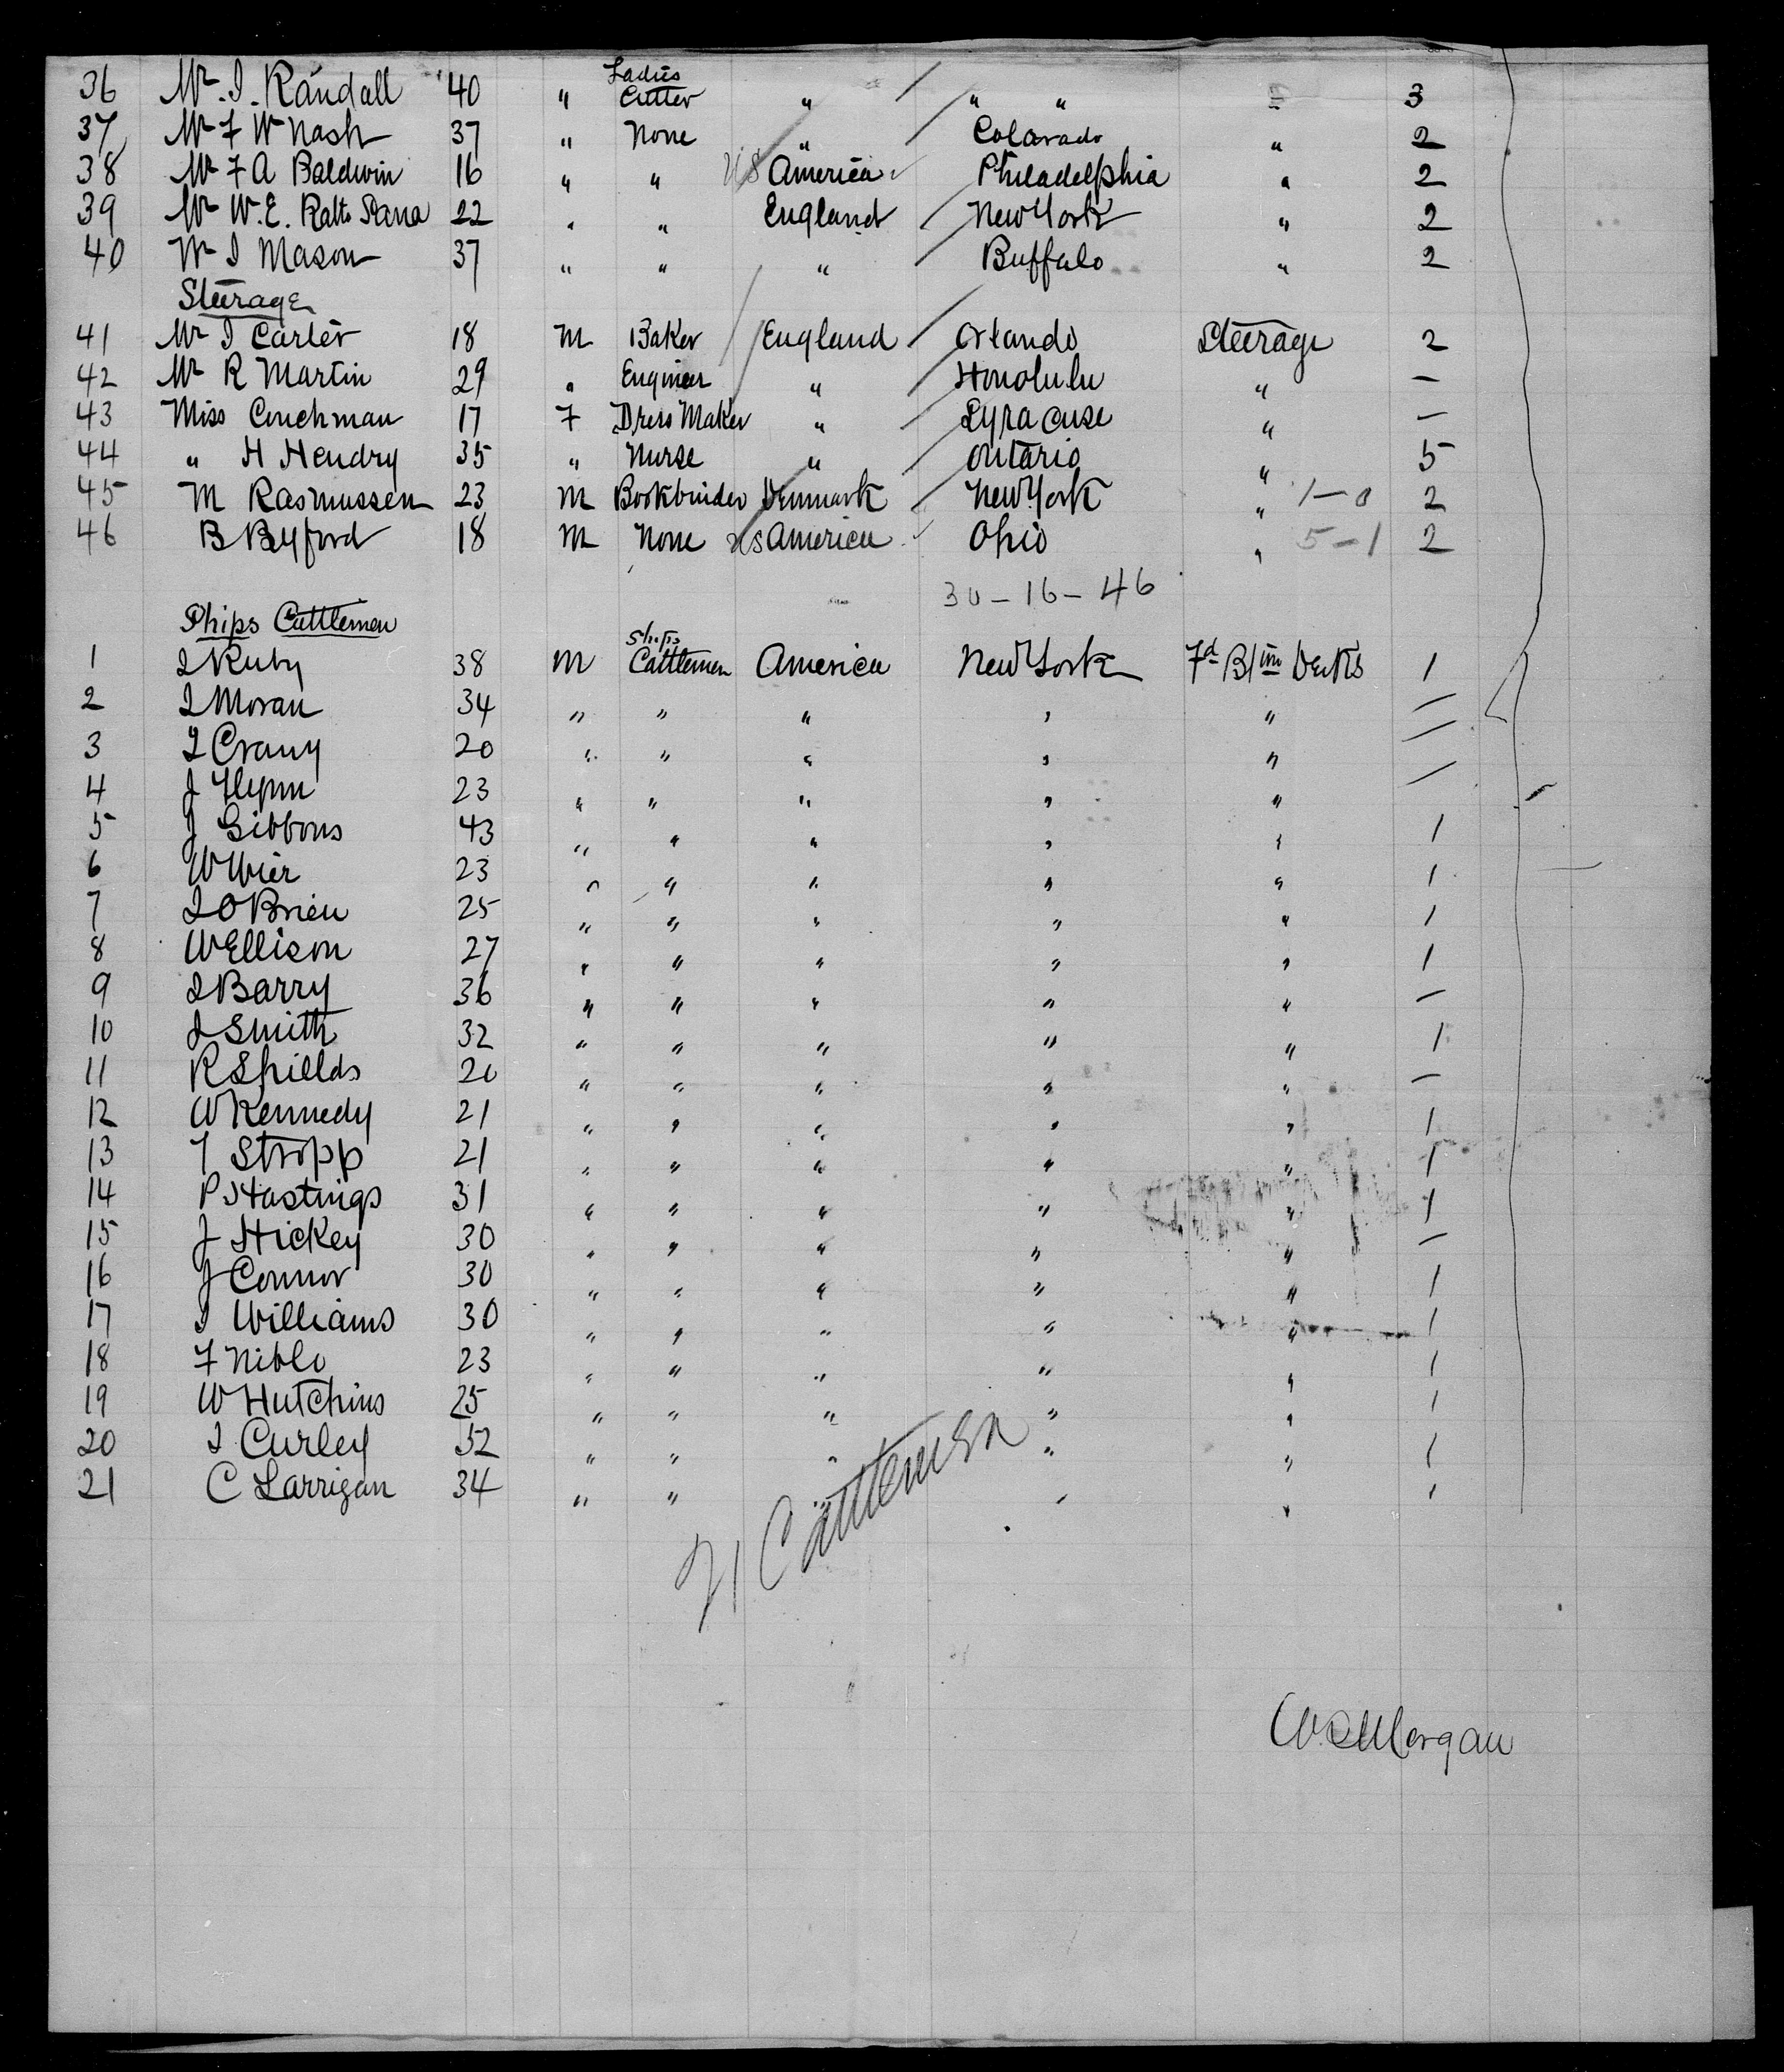 36 Mr. I. Randall 40 " Ladies Cutter " " " " 3
37 Mr F W Nash 37 " None " Colorado " 2
38 Mr F A Baldwin 16 " " US America Philadelphia " 2
39 Mr W.E. 22 " " England New York " 2
40 Mr I Mason 37 " " " Buffalo " 2
Steerage
41 Mr I Carter 18 M Baker England Orlando Steerage 2
42 Mr R Martin 29 " Engineer " Honolulu " —
43 Miss Couchman 17 F Dress Maker " Syracuse " —
44 " H Hendry 35 " Nurse " Ontario " 5
45 M Rasmussen 23 M Bookbinder Denmark New York " 1-0 2
46 B Byford 18 M None US America Ohio " 5-1 2
30-16-46
Ships Cattlemen
1 I Ruby 38 M Ships Cattlemen America New York Decks 1
2 I Moran 34 " " " " " —
3 I Crany 20 " " " " " —
4 J Flynn 23 " " " " " —
5 J Gibbons 43 " " " " " 1
6 W Wier 23 " " " " " 1
7 I O Brien 25 " " " " " 1
8 W Ellison 27 " " " " " 1
9 I Barry 36 " " " " " —
10 I Smith 32 " " " " " 1
11 R Shillds 20 " " " " " —
12 W Kennedy 21 " " " " " 1
13 T Stropp 21 " " " " " 1
14 P Hastings 31 " " " " " 1
15 J Hickey 30 " " " " " —
16 J Connor 30 " " " " " 1
17 I Williams 30 " " " " " 1
18 F Niblo 23 " " " " " 1
19 W Hutchins 25 " " " " " 1
20 I Curley 52 " " " " " 1
21 C Larrigan 34 " " " " " 1
21 Cattlemen
W. S. Morgan